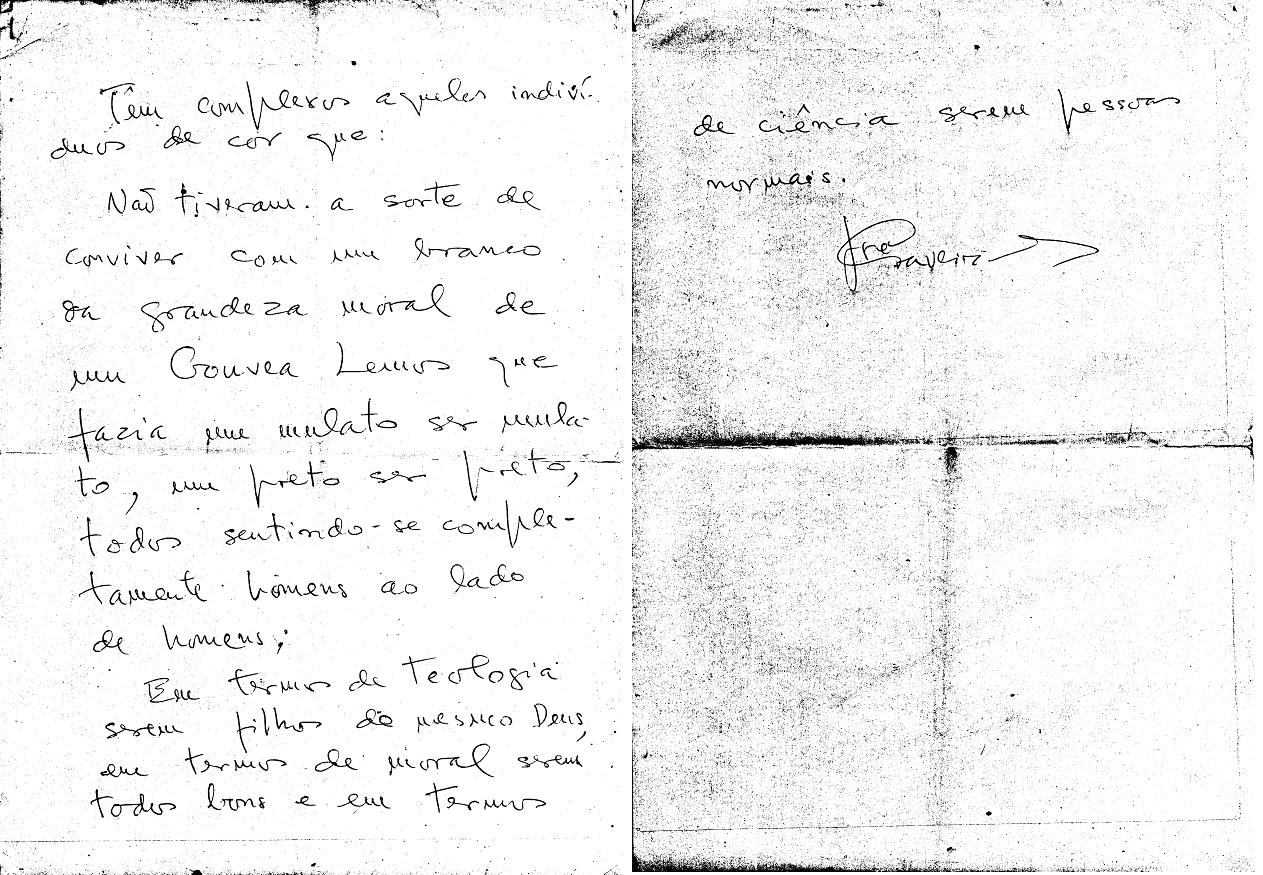 Têm complexos aqueles indiví-
duos de cor que:
Não tiveram a sorte de
conviver com um branco
da grandeza moral de
um Gouvea Lemos que
fazia um mulato ser mula-
to, um preto ser preto,
todos sentindo-se comple-
tamente homens ao lado
de homens;
Em termos de Teologia
serem filhos do mesmo Deus,
em termos de moral serem
todos bons e em termos
de ciência serem pessoas
normais.
Craveirinha